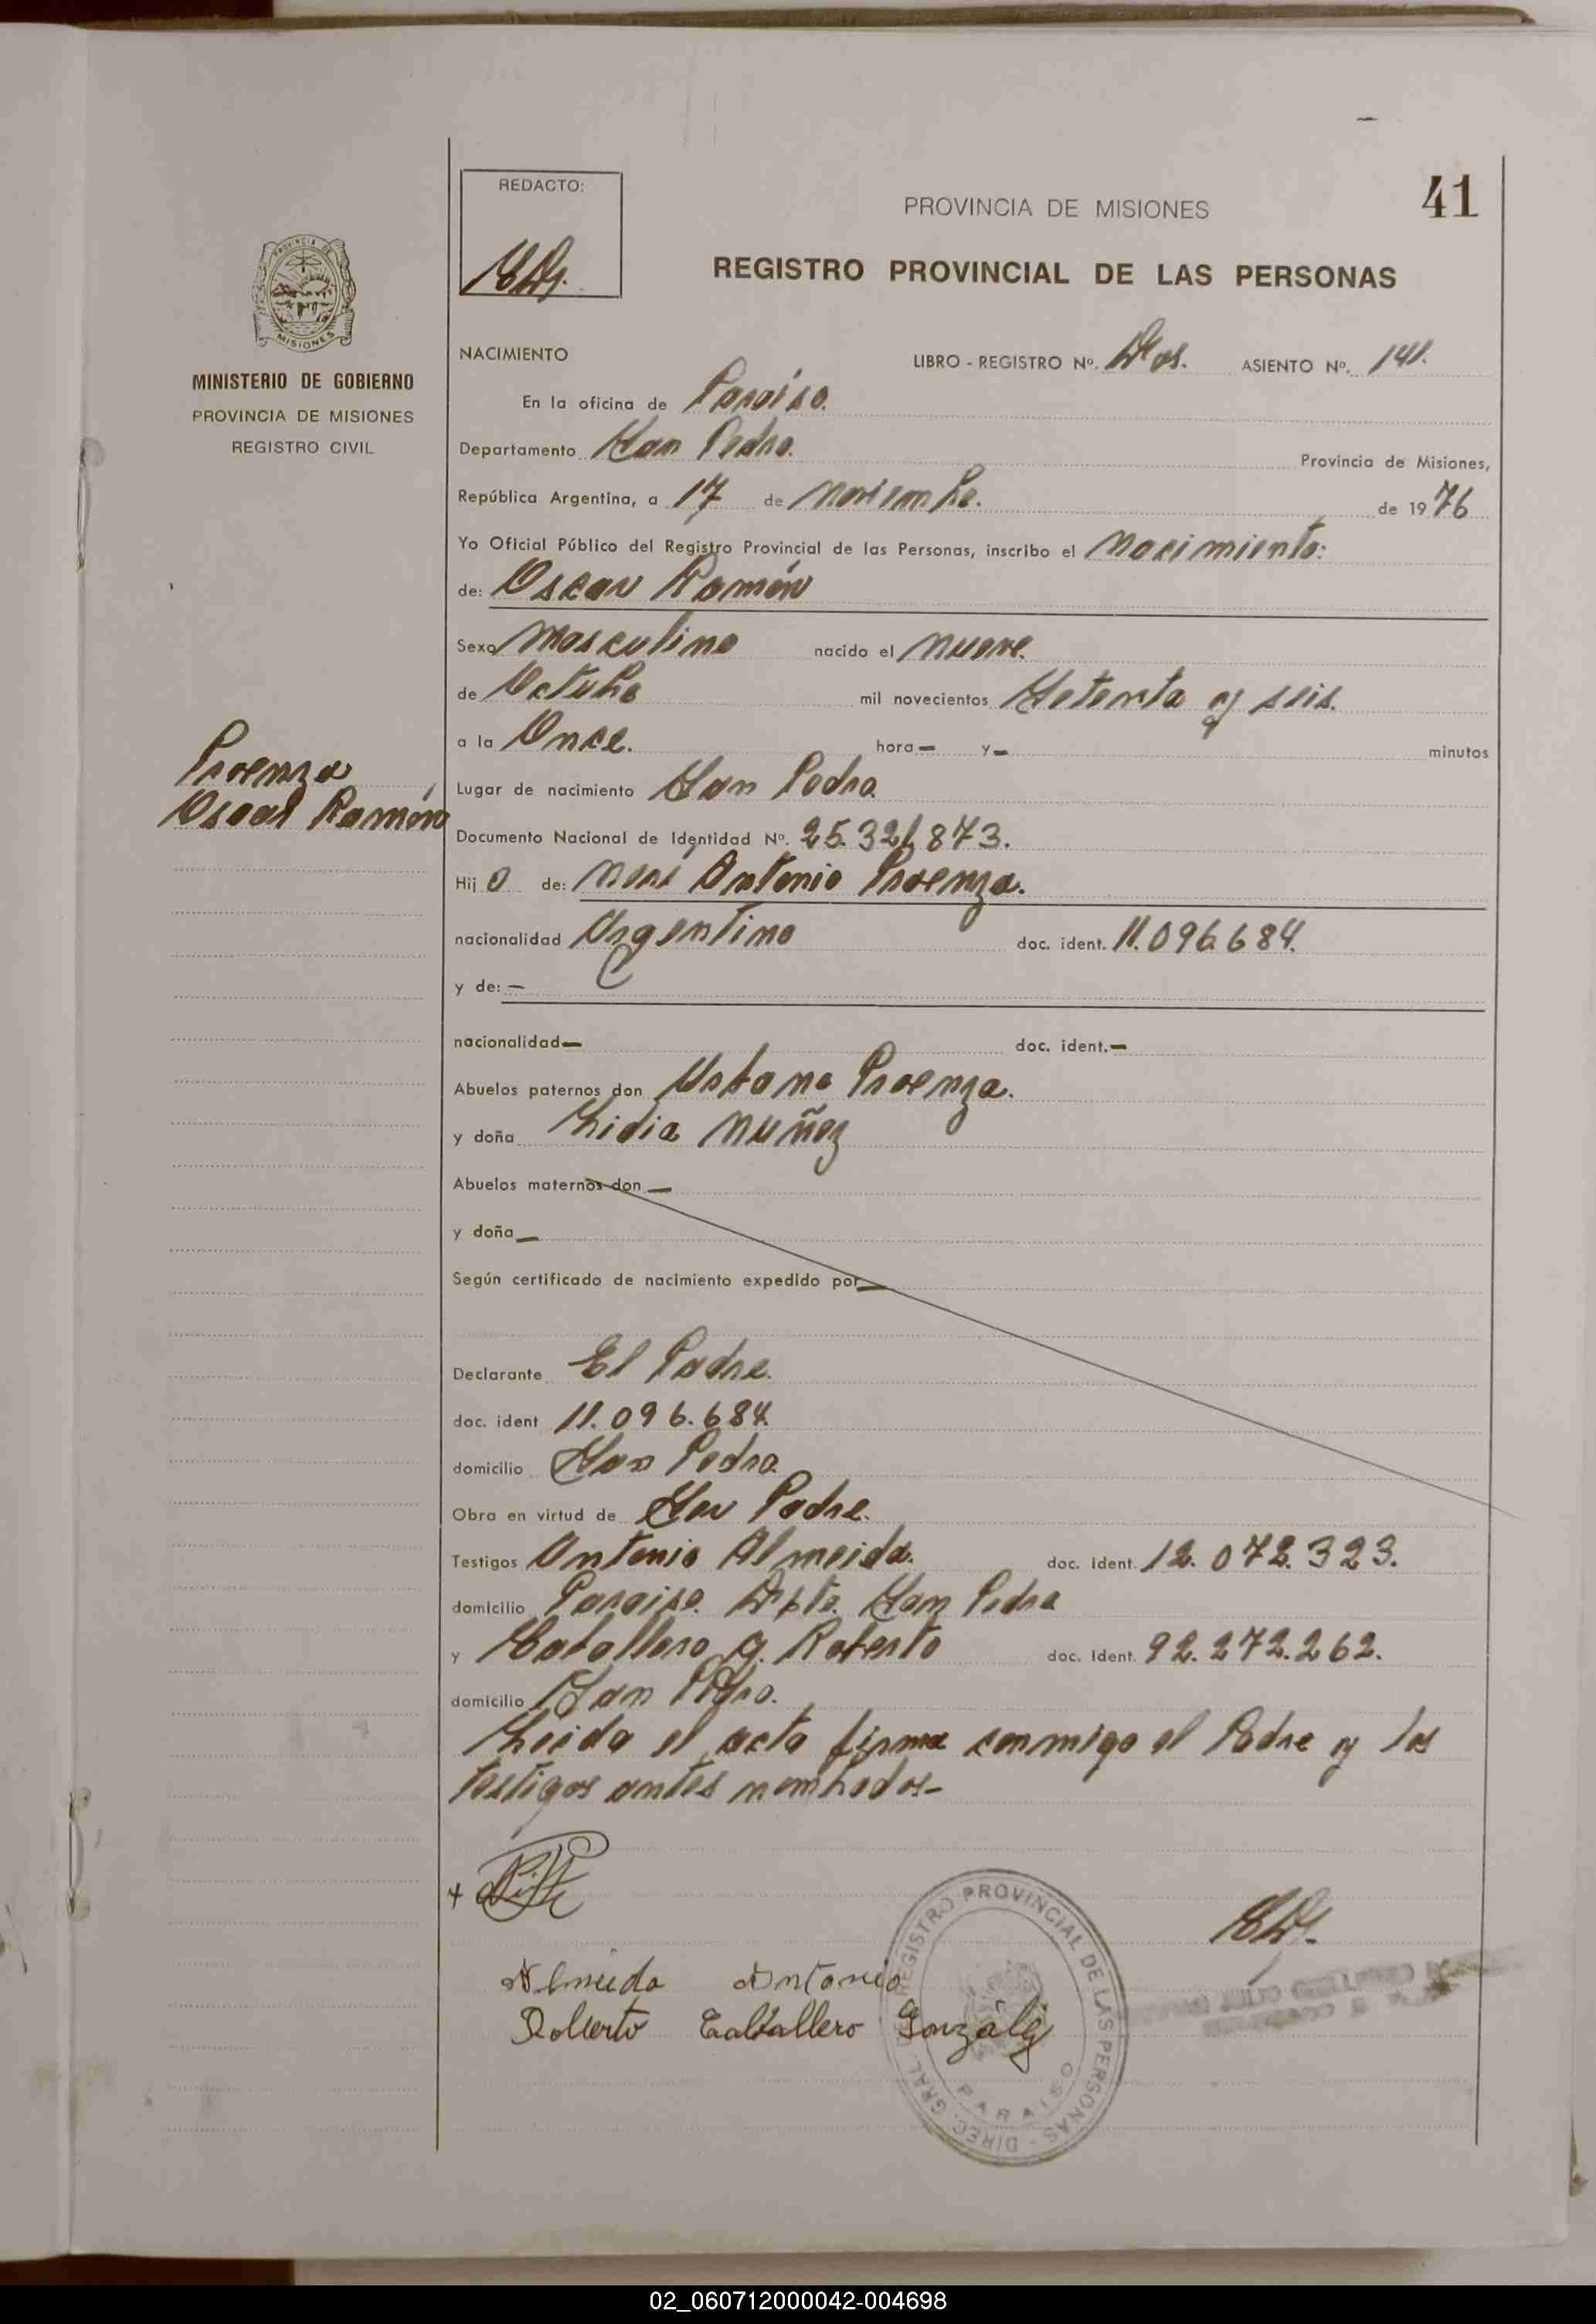 41
REDACTO:
PROVINCIA DE MISIONES
REGISTRO PROVINCIAL DE LAS PERSONAS
PROVINCIA DE
MISIONES
MINISTERIO DE GOBIERNO
PROVINCIA DE MISIONES
REGISTRO CIVIL
NACIMIENTO LIBRO - REGISTRO Nº. Dos. ASIENTO Nº. 141.
En la oficina de Paraíso.
Departamento San Pedro. Provincia de Misiones,
República Argentina, a 17 de Noviembre. de 1976
Yo Oficial Público del Registro Provincial de las Personas, inscribo el Nacimiento:
de: Oscar Ramón
Sexo Masculino nacido el nueve.
de Octubre mil novecientos Setenta y seis.
a la Once. hora — y — minutos
Proenza
Oscar Ramón
Lugar de nacimiento San Pedro.
Documento Nacional de Identidad Nº. 25.321.873.
Hijo de: Antonio Proenza.
nacionalidad Argentino doc. ident. 11.096.684.
y de: —
nacionalidad — doc. ident. —
Abuelos paternos don Proenza.
y doña Lidia Nuñez
Abuelos maternos don —
y doña —
Según certificado de nacimiento expedido por —
Declarante El Padre.
doc. ident 11.096.684.
domicilio San Pedro.
Obra en virtud de Ser Padre.
Testigos Antonio Almeida. doc. ident. 12.072.323.
domicilio Paraiso. Dpto. San Pedro
y Caballero G. Roberto doc. ident. 92.272.262.
domicilio San Pedro.
Leida el acta firma conmigo el Padre y los
testigos antes nombrados-
Almeida Antonio
Roberto Caballero González
DIREC. GRAL. DEL REGISTRO PROVINCIAL DE LAS PERSONAS -
PARAISO
02_060712000042-004698